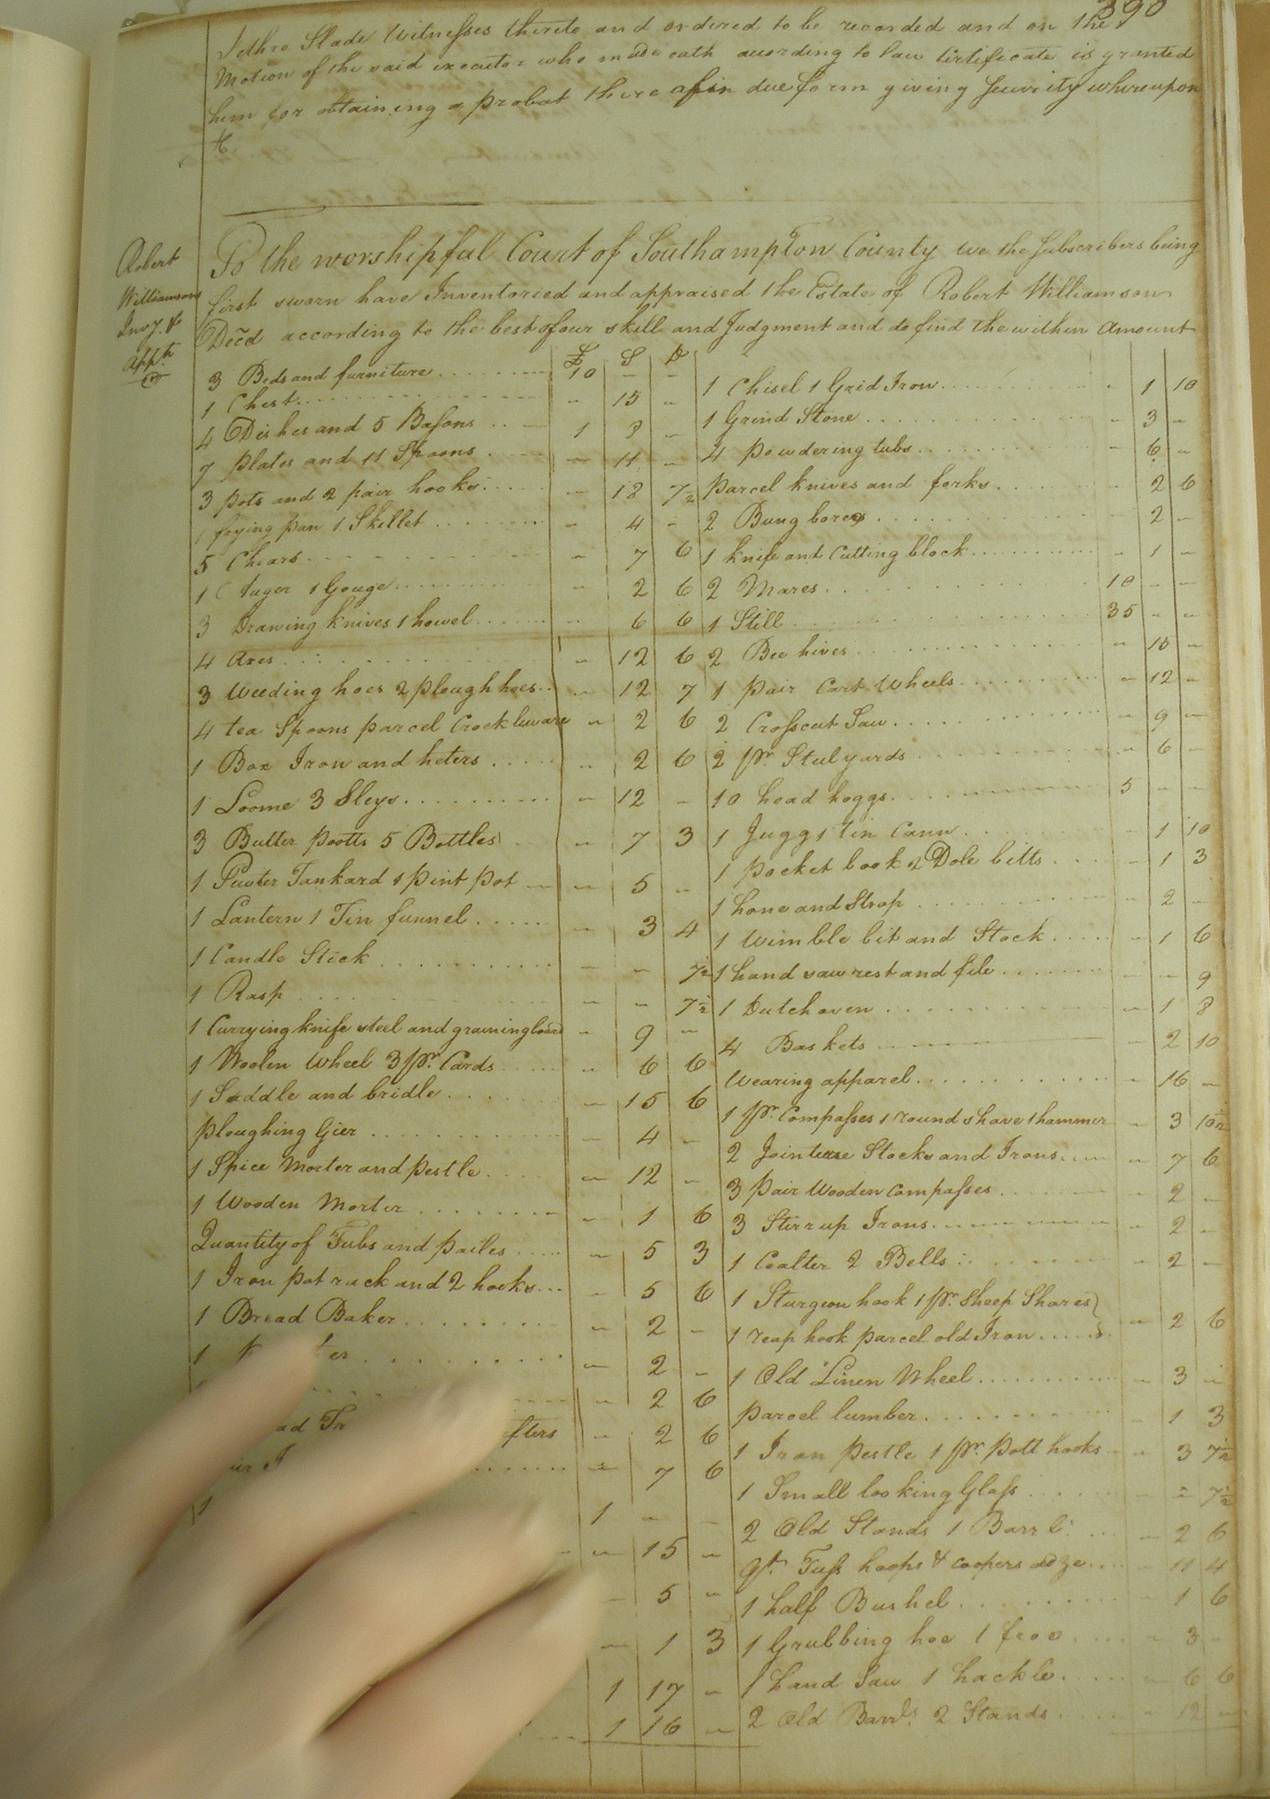 390
Jethro Slade Witnesses thereto and ordered to be recorded and on the
Motion of the said executor who made oath according to law Certificate is granted
him for obtaining a probat there of in due form giving Security whereupon
&c
Robert
Williamsons
Invy. &
Appt.
To the worshipful Court of Southampton County we the Subscribers being
first sworn have Inventoried and appraised the Estate of Robert Williamson
Decd according to the best of our skill and Judgment and do find the within Amount
£ S D
3 Beds and furniture 10 - -
1 Chest - 15 -
4 Dishes and 5 Basons 1 8 -
7 plates and 11 Spoons - 11 -
3 pots and 2 pair hooks - 18 7½
1 frying pan 1 Skillet - 4 -
5 Chears - 7 6
1 Auger 1 Gouge - 2 6
3 Drawing knives 1 howel - 6 6
4 Axes - 12 6
3 Weeding hoes 2 plough hoes - 12 7
4 tea Spoons parcel Crockleware - 2 6
1 Box Iron and heters - 2 6
1 Loome 3 Sleys - 12 -
3 Butter pootts 5 Bottles - 7 3
1 Puter Tankard 1 pint pot - 5 -
1 Lantern 1 Tin funnel - 3 4
1 Candle Stick - - 7½
1 Rasp - - 7½
1 Currying knife steel and graining board - 9 -
1 Woolen Wheel 3 pr. Cards - 6 6
1 Saddle and bridle - 15 6
ploughing Gier - 4 -
1 Spice Morter and pestle - 12 -
1 Wooden Morter - 1 6
Quantity of Tubs and pailes - 5 3
1 Iron pot rack and 2 hooks - 5 6
1 Bread Baker - 2 -
1 - 2 -
- 2 6
- 2 6
- 7 6
1 1 - -
- 15 -
- 5 -
- 1 3
1 17 -
1 16 -
1 Chisel 1 Grid Iron - 1 10
1 Grind Stone - 3 -
4 powdering tubs - 6 -
parcel knives and forks - 2 6
2 Bung borers - 2 -
1 knife and Cutting block - 1 -
2 Mares 10 - -
1 Still 35 - -
2 Bee hives - 10 -
1 pair Cart Wheels - 12 -
2 Crosscut Saw - 9 -
2 pr. Stulyards - 6 -
10 head hoggs 5 - -
1 Jugg 1 tin Cann - 1 10
1 pocket book 2 Dole bitts - 1 3
1 hone and Strop - 2 -
1 Wimble bit and Stock - 1 6
1 hand saw rest and file - - 9
1 Dutch oven - 1 8
4 Baskets - 2 10
Wearing apparel - 16 -
1 pr. Compasses 1 round shave 1 hammer - 3 10½
2 Jointers Stocks and Irons - 7 6
3 pair Wooden Compasses - 2 -
3 Stirrup Irons - 2 -
1 Coalter 2 Bells - 2 -
1 Sturgeon hook 1 pr. Sheep Shares
1 reap hook parcel old Iron - 2 6
1 Old Linen Wheel - 3 -
parcel lumber - 1 3
1 Iron pestle 1 pr. Pott hooks - 3 7½
1 Small looking Glass - - 7½
2 Old Stands 1 Barrl. - 2 6
qt. Tuss hoops & coopers adze - 11 4
1 half Bushel - 1 6
1 Grubbing hoe 1 froe - 3 -
1 hand Saw 1 hackle - 6 6
2 Old Barrls. 2 Stands - 12 -